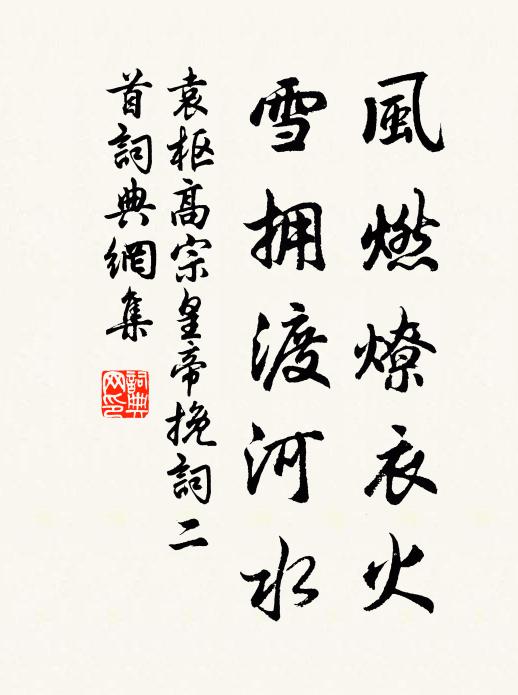 風燃燎衣火
雪拥渡河水
袁枢高宗皇帝挽詞二
首詞典網集
詞典
网印